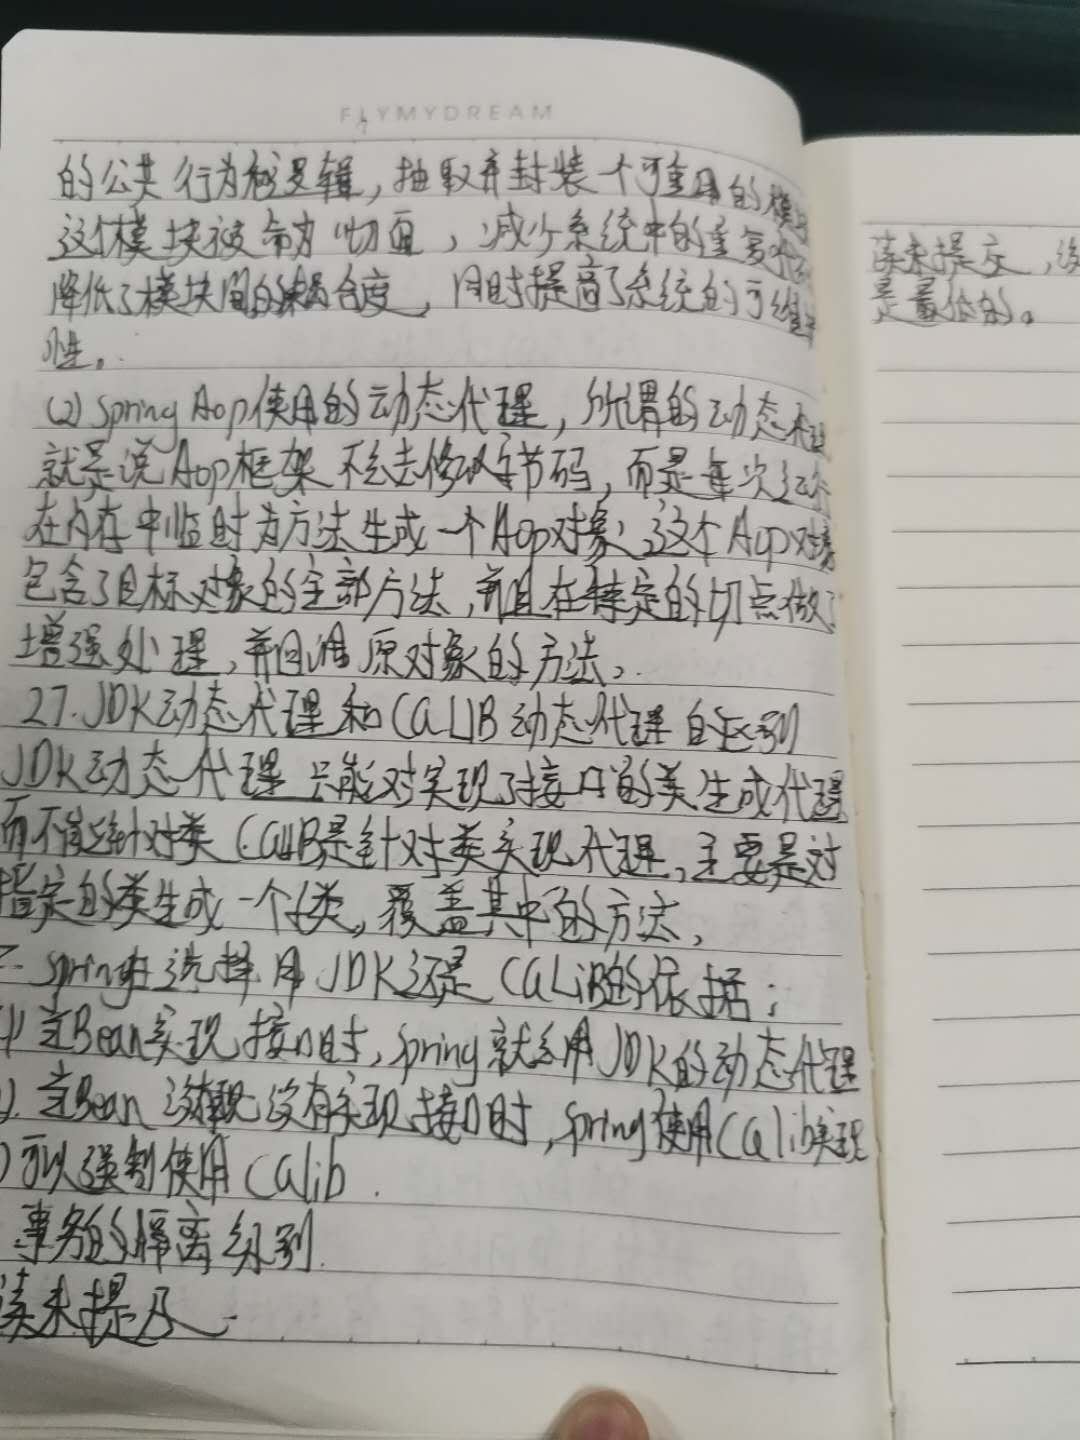 FLYMYDREAM
的公共行为和逻辑,抽取并封装一个可重用的模块
这个模块被命为切面,减少系统中的重复
降低了模块间的耦合度,同时提高了系统的可维
性。
(2) Spring Aop使用的动态代理,所谓的动态代理
就是说Aop框架不会去修改字节码,而是每次运
在内存中临时为方法生成一个Aop对象,这个Aop对象
包含了目标对象的全部方法,并且在特定的切点做了
增强处理,并回调原对象的方法。
27.JDK动态代理和CGLIB动态代理的区别
JDK动态代理只能对实现了接口的类生成代理
而不能针对类 CGLIB是针对类实现代理,主要是对
指定的类生成一个子类,覆盖其中的方法,
Spring在选择用JDK还是CGLiB的依据:
当Bean实现接口时,Spring就会用JDK的动态代理
当Bean 没有实现接口时,Spring使用CGlib实现
可以强制使用CGlib.
事务的隔离级别.
读未提及
读未提交,
是最低的。